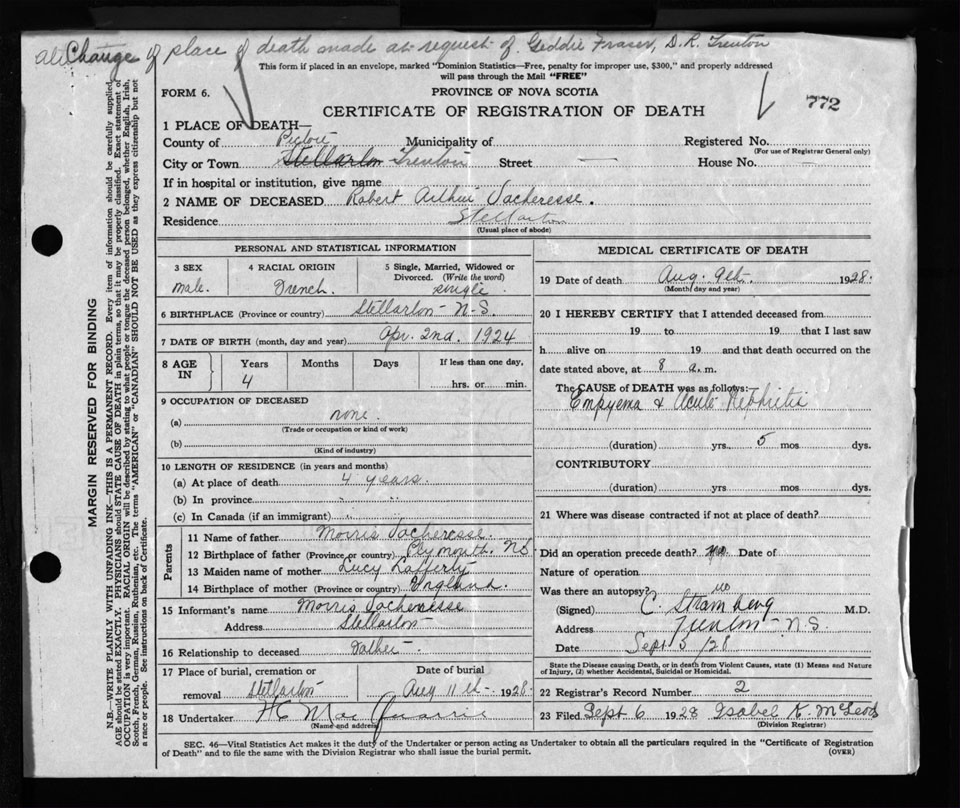 Change of place of death made at request of Geddie Fraser, D.R. Trenton
This form if placed in an envelope, marked "Dominion Statistics—Free, penalty for improper use, $300," and properly addressed
will pass through the Mail "FREE"
FORM 6.
PROVINCE OF NOVA SCOTIA
772
CERTIFICATE OF REGISTRATION OF DEATH
1 PLACE OF DEATH—
County of Pictou Municipality of Registered No.
(For use of Registrar General only)
City or Town Stellarton Trenton Street — House No.
If in hospital or institution, give name
2 NAME OF DECEASED Robert Arthur Vacheresse.
Residence Stellarton
(Usual place of abode)
MARGIN RESERVED FOR BINDING
N.B.—WRITE PLAINLY WITH UNFADING INK—THIS IS A PERMANENT RECORD. Every item of information should be carefully supplied.
AGE should be stated EXACTLY. PHYSICIANS should STATE CAUSE OF DEATH in plain terms, so that it may be properly classified. Exact statement of
OCCUPATION is very important. RACIAL ORIGIN will be described by stating to what people or tongue the deceased person belonged, whether English, Irish,
Scotch, French, German, Russian, Ruthenian, etc. The terms "AMERICAN" or "CANADIAN" SHOULD NOT BE USED as they express citizenship but not
a race or people. See instructions on back of Certificate.
PERSONAL AND STATISTICAL INFORMATION
3 SEX
male.
4 RACIAL ORIGIN
French.
5 Single, Married, Widowed or
Divorced. (Write the word)
single
6 BIRTHPLACE (Province or country) Stellarton N.S.
7 DATE OF BIRTH (month, day and year) Apr. 2nd. 1924
8 AGE IN
Years Months Days If less than one day,
4
hrs. or min.
9 OCCUPATION OF DECEASED
(a) none.
(Trade or occupation or kind of work)
(b)
(Kind of industry)
10 LENGTH OF RESIDENCE (in years and months)
(a) At place of death 4 years.
(b) In province " "
(c) In Canada (if an immigrant)
Parents
11 Name of father Morris Vacheresse.
12 Birthplace of father (Province or country) Plymouth. NS
13 Maiden name of mother Lucy Lafferty
14 Birthplace of mother (Province or country) England.
15 Informant's name Morris Vacheresse
Address Stellarton
16 Relationship to deceased Father
17 Place of burial, cremation or
removal Stellarton
Date of burial
Aug 11th 1928
18 Undertaker
(Name and address)
MEDICAL CERTIFICATE OF DEATH
19 Date of death Aug. 9th. 1928.
(Month, day and year)
20 I HEREBY CERTIFY that I attended deceased from
19 to 19 that I last saw
h alive on 19 and that death occurred on the
date stated above, at 8 a. m.
The CAUSE of DEATH was as follows:
Empyema & Acute Nephritis
(duration) yrs. 5 mos dys.
CONTRIBUTORY
(duration) yrs. mos. dys.
21 Where was disease contracted if not at place of death?
Did an operation precede death? Date of
Nature of operation
Was there an autopsy? no
(Signed) C. Stramberg M.D.
Address Trenton N.S
Date Sept 5/28
State the Disease causing Death, or in death from Violent Causes, state (1) Means and Nature
of Injury, (2) whether Accidental, Suicidal or Homicidal.
22 Registrar's Record Number 2
23 Filed Sept 6 1928 Isabel K. McLeod
(Division Registrar)
SEC. 46—Vital Statistics Act makes it the duty of the Undertaker or person acting as Undertaker to obtain all the particulars required in the "Certificate of Registration
of Death" and to file the same with the Division Registrar who shall issue the burial permit.
(OVER)